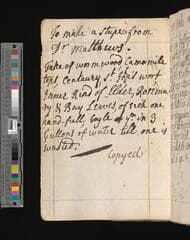 To make a stupe from
Dr Matthews.
Take of wormwood Camomile
tops Centaury St Jons wort
Inner Rind of Elder, Rosema
ry & Bay Leaves of each one
hand-full boyle ym in 3
Gallons of water till one is
wasted.
Copyed